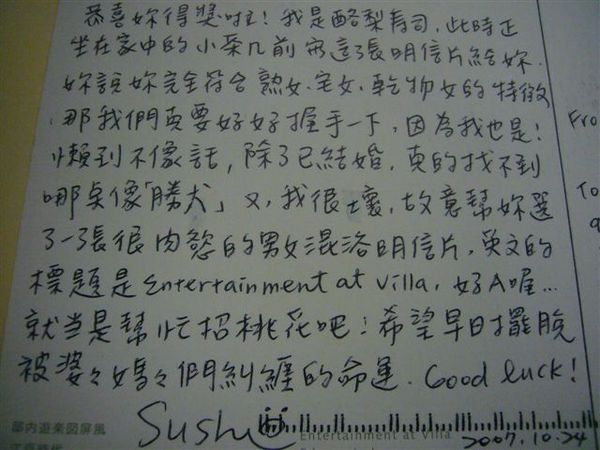 恭喜妳得獎啦！我是酪梨壽司，此時正
坐在家中的小茶几前寫這張明信片給妳.
妳說妳完全符合熟女、宅女、乾物女的特徵
.那我們真要好好握手一下，因為我也是！
懶到不像話，除了已結婚，真的找不到
哪點像「勝犬」又，我很壞，故意幫妳選
了一張很肉慾的男女混浴明信片，英文的
標題是Entertainment at Villa，好A喔...
就当是幫忙招桃花吧！希望早日擺脫
被婆々媽々們糾纏的命運. Good luck!
Sushi
2007.10.24
邸内遊楽図屏風
Entertainment at Villa
Fro
To